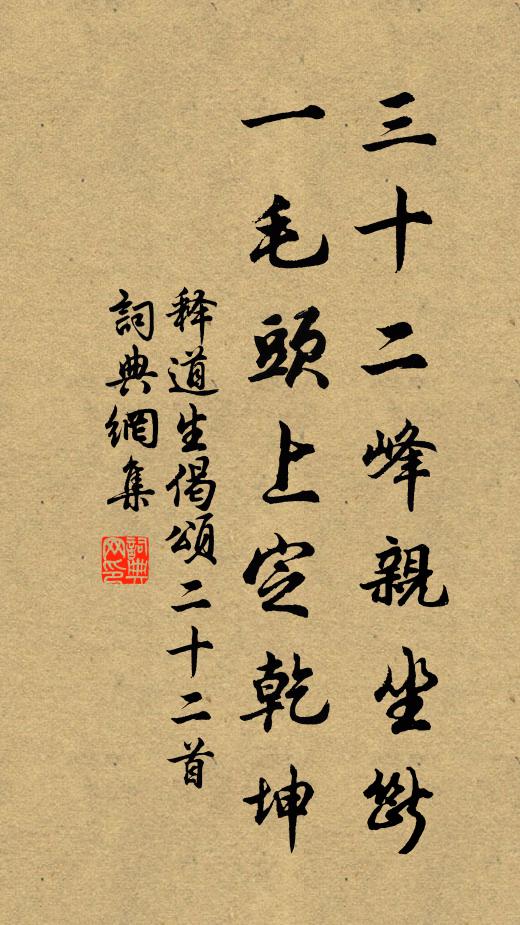 三十二峰親坐斷
一毛頭上定乾坤
释道生偈頌二十二首
詞典網集
詞典网印